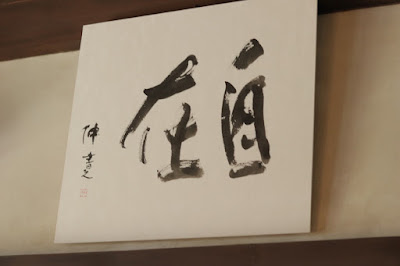 自在
伸書之